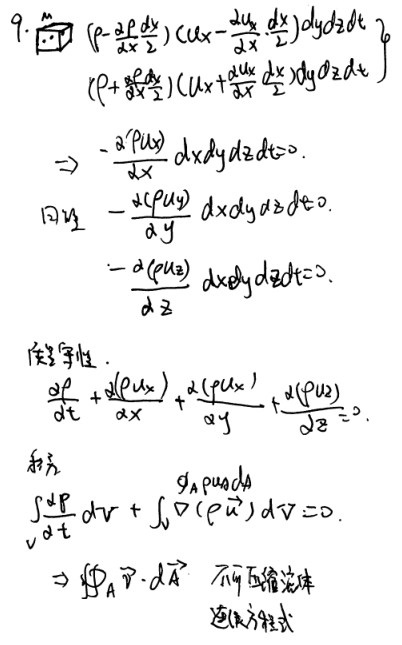 9. M (ρ-∂ρ/∂x dx/2)(ux-∂ux/∂x·dx/2)dydzdt
(ρ+∂ρ/∂x dx/2)(ux+∂ux/∂x dx/2)dydzdt
⇒ -∂(ρux)/∂x dxdydzdt=0.
同理 -∂(ρuy)/∂y dxdydzdt=0.
-∂(ρuz)/∂z dxdydzdt=0.
质量守恒.
∂ρ/∂t + ∂(ρux)/∂x + ∂(ρux)/∂y + ∂(ρuz)/∂z =0.
积分
∮A ρundA
∫V ∂ρ/∂t dv + ∫V ∇(ρu⃗)dv=0.
⇒ ∯A v⃗·dA⃗ 不可压缩流体
连续方程式